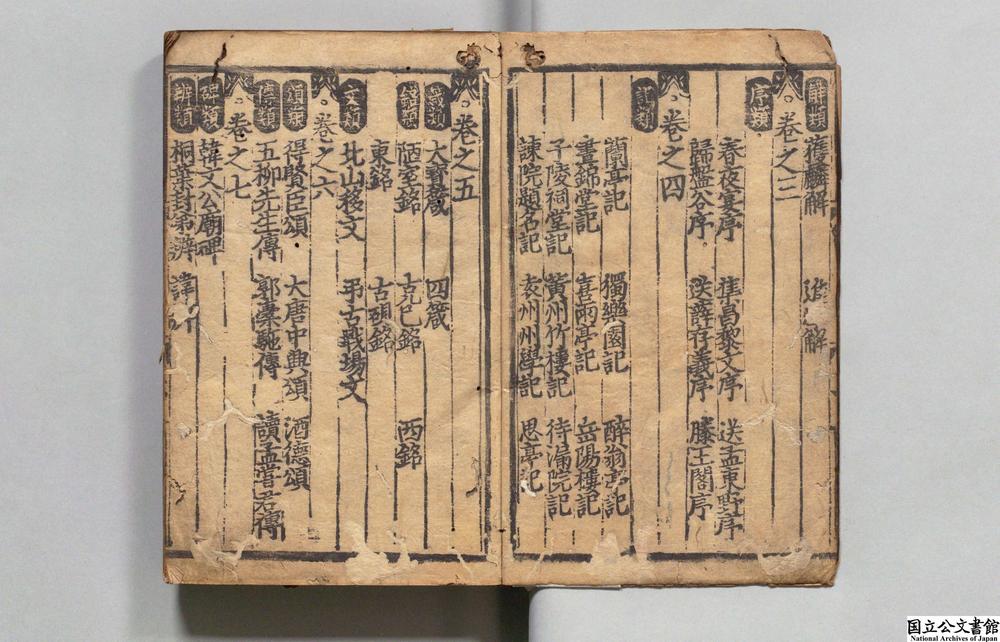 解類 獲麟解 進 解
卷之三
序類 春夜宴序 集昌黎文序 送孟東野序
歸盤谷序 送薛存義序 滕王閣序
卷之四
記類 蘭亭記 獨樂園記 醉翁亭記
晝錦堂記 喜雨亭記 岳陽樓記
子陵祠堂記 黃州竹樓記 待漏院記
諫院題名記 袁州州學記 思亭記
卷之五
箴類 大寶箴 四箴
銘類 陋室銘 克己銘 西銘
東銘 古硯銘
文類 北山移文 弔古戰場文
卷之六
頌類 得賢臣頌 大唐中興頌 酒德頌
傳類 五柳先生傳 郭橐駞傳 讀孟嘗君傳
卷之七
碑類 韓文公廟碑
辨類 桐葉封弟辨 諱
国立公文書館
National Archives of Japan